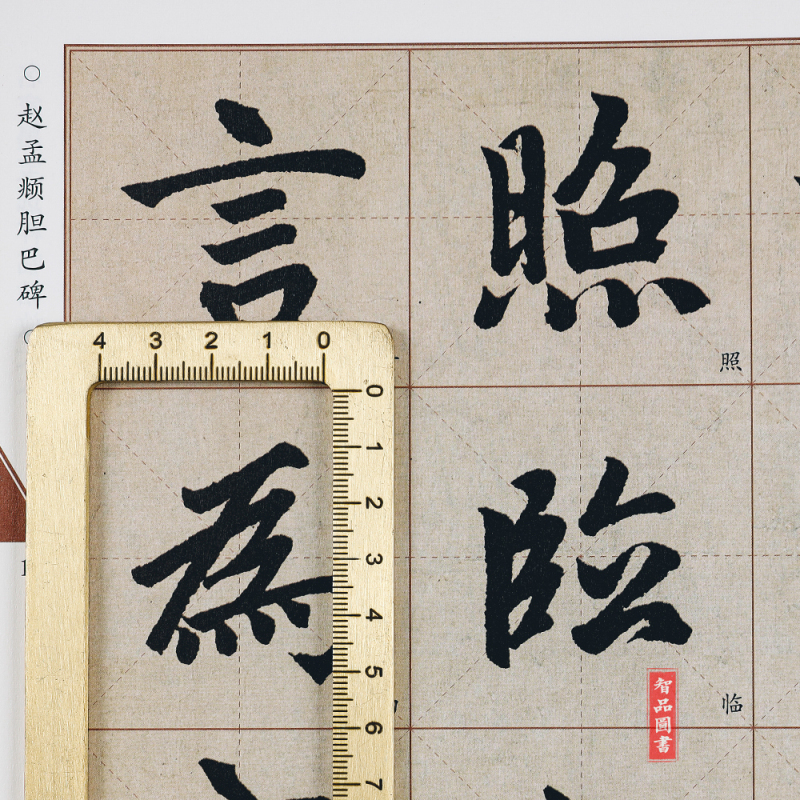 ○赵孟頫胆巴碑○
言 照
照
為 臨
临
智品圖書
4 3 2 1 0
0
1
2
3
4
5
6
7